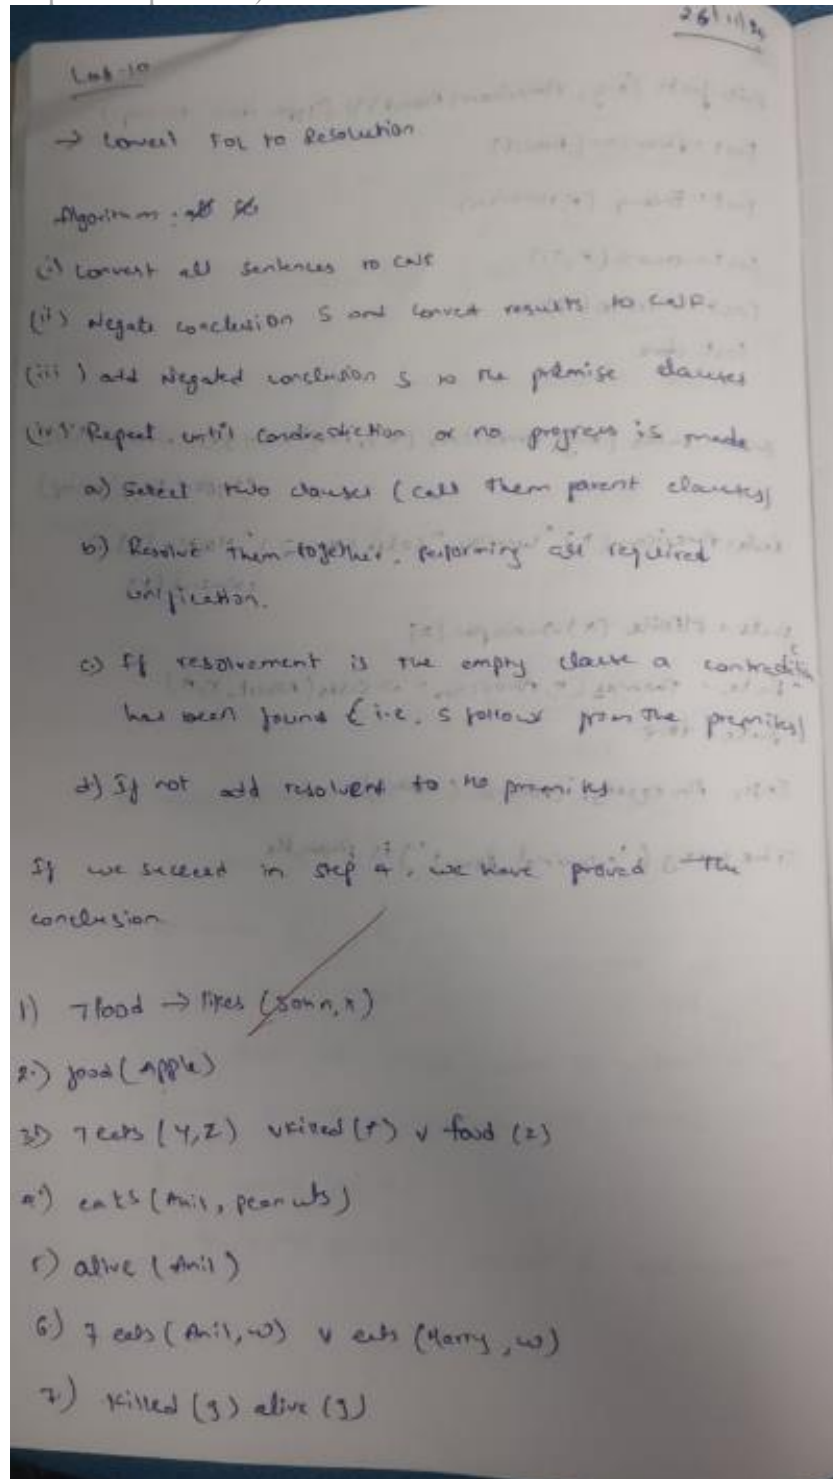 26/11/24
Lab-10
→ Convert FOL to Resolution
Algorithm:
(i) Convert all sentences to CNF
(ii) Negate conclusion S and convert results to CNF
(iii) add Negated conclusion S to the premise clauses
(iv) Repeat until contradiction or no progress is made
a) Select two clauses (call them parent clauses)
b) Resolve them together, performing all required
unification.
c) If resolvement is the empty clause a contradiction
has been found (i.e. S follows from the premises)
d) If not add resolvent to the premises
If we succeed in step 4, we have proved the
conclusion
1) ¬food → likes (John, x)
2.) food (Apple)
3.) ¬eats (Y, Z) v killed (Y) v food (z)
4.) eats (Anil, peanuts)
5) alive (Anil)
6.) ¬ eats (Anil, w) v eats (Harry, w)
7.) killed (g) alive (g)